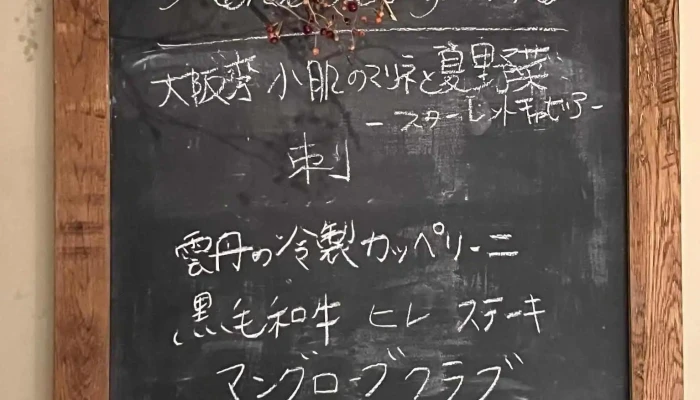 大阪湾 小肌のマリネと夏野菜
－スターレットキャビア－
刺
雲丹の冷製カッペリーニ
黒毛和牛 ヒレ ステーキ
マングローブクラブ